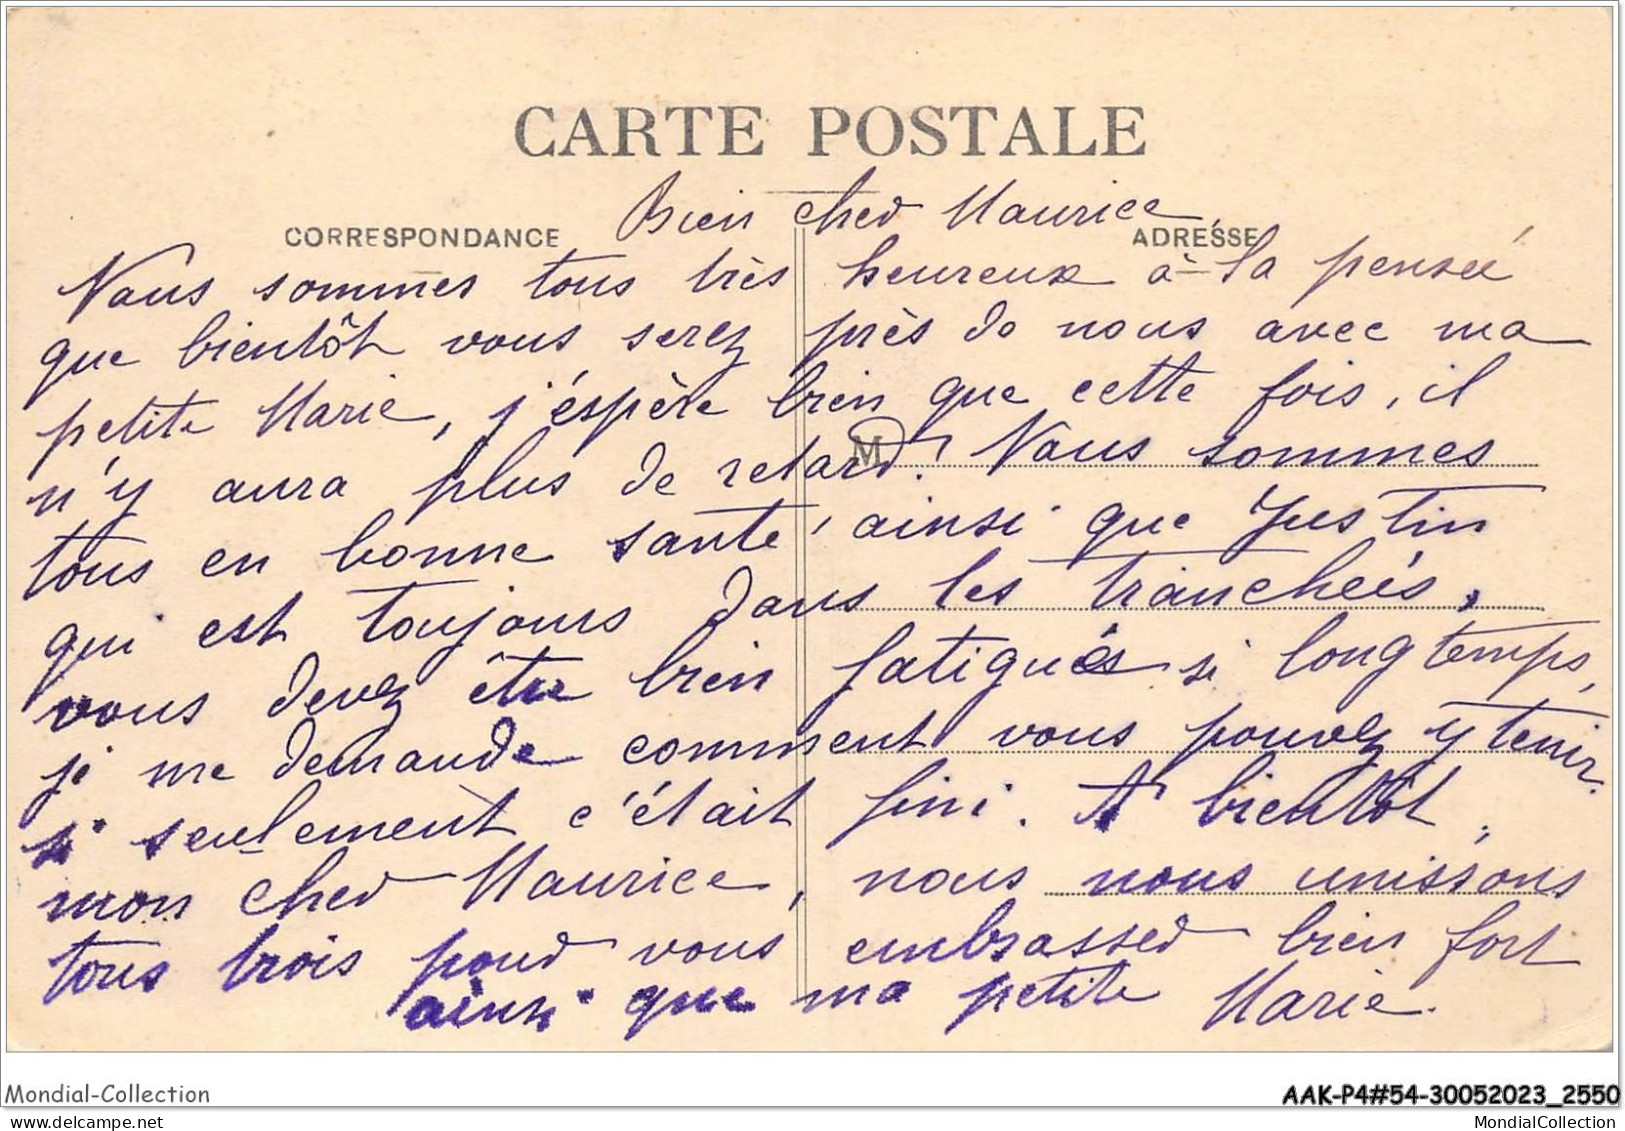 CARTE POSTALE
Bien cher Maurice,
CORRESPONDANCE
ADRESSE
Nous sommes tous très heureux à la pensée
que bientôt vous serez près de nous avec ma
petite Marie, j'éspère bien que cette fois, il
n'y aura plus de retard. Nous sommes
M
tous en bonne santé, ainsi que Justin
qui est toujours dans les tranchées,
vous devez être bien fatigués si longtemps,
je me demande comment vous pouvez y tenir.
si seulement c'était fini. A bientôt,
mon cher Maurice, nous nous unissons
tous trois pour vous embrasser bien fort
ainsi que ma petite Marie.
Mondial-Collection
AAK-P4#54-30052023_2550
https://www.delcampe.net
MondialCollection